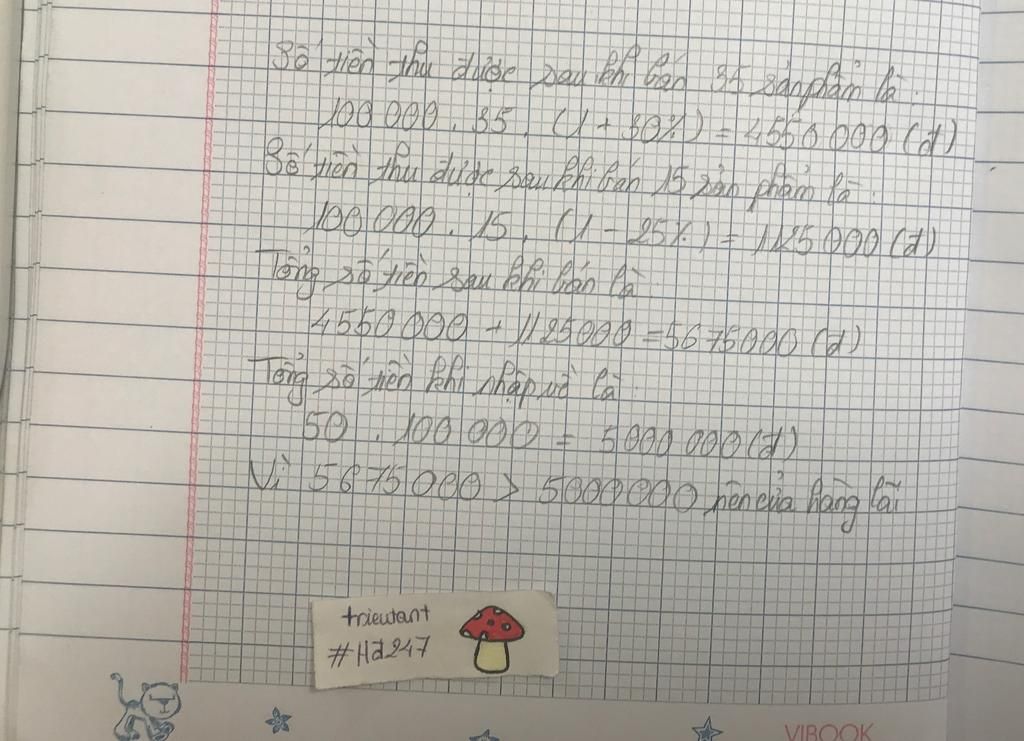 Số tiền thu được sau khi bán 35 sản phẩm là:
100 000 . 35 . (1 + 30%) = 4550 000 (đ)
Số tiền thu được sau khi bán 15 sản phẩm là:
100 000 . 15 . (1 - 25%) = 1125 000 (đ)
Tổng số tiền sau khi bán là:
4550 000 + 1125000 = 5675000 (đ)
Tổng số tiền khi nhập về là:
50 . 100 000 = 5000 000 (đ)
Vì 5675000 > 5000000 nên cửa hàng lãi
trieutant
#Hd247
VIBOOK